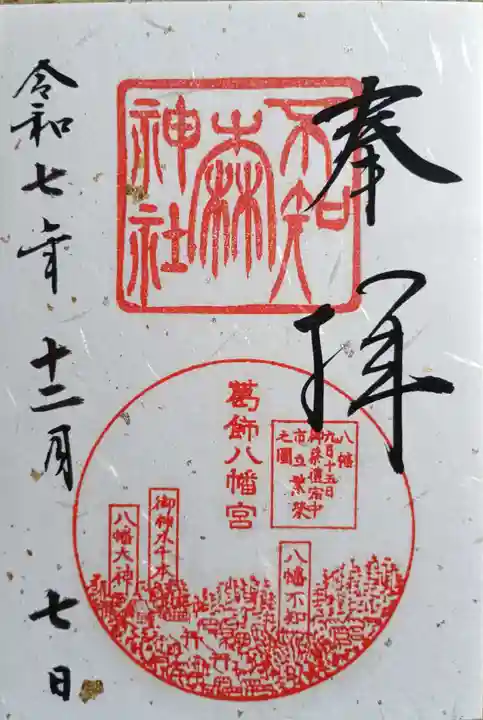 奉拝
不知
森
神社
葛飾八幡宮
八幡
九月十五日
御祭礼宿中
市立繁栄
之図
八幡不知
御神木千本
八幡大神
令和七年十二月七日